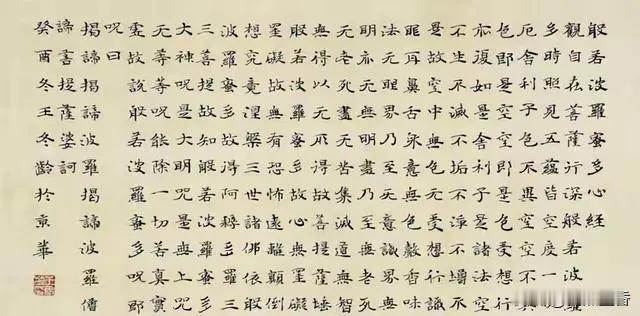 般若波羅蜜多心經
觀自在菩薩行深般若波羅
多時照見五蘊皆空度一
厄舍利子色不異空空不異
色即是空空即是色受想行
亦復如是舍利子是諸法空
不生不滅不垢不淨不增不
是故空中无色无受想行識
眼耳鼻舌身意无色聲香味
法无眼界乃至无意識界无
明亦无無明盡乃至无老死
无老死盡无苦集滅道無智
無得以无所得故菩提薩埵
般若波羅蜜多故心無罣
罣礙故無有恐怖遠離顛倒
想究竟涅槃三世諸佛依般
波羅蜜多故得阿耨多羅三
三菩提故知般若波羅蜜多
大神咒是大明咒是無上咒
无等等咒能除一切苦真實
虛故說般若波羅蜜多咒即
咒曰
揭諦揭諦波羅揭諦波羅僧
諦菩提薩婆訶
癸酉冬王冬齡於京華